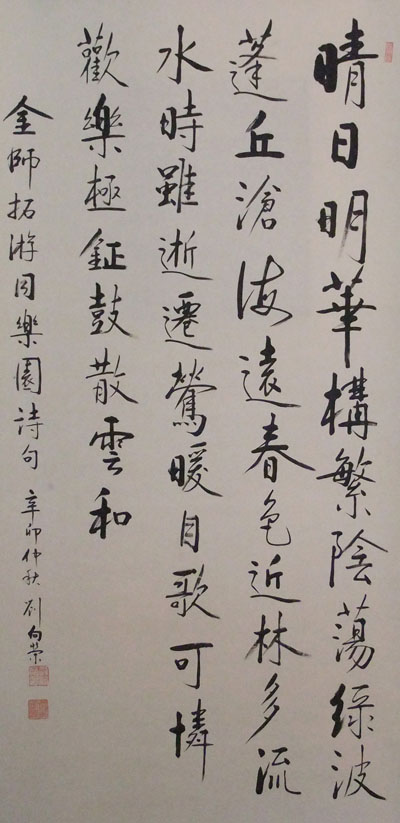 晴日明華構繁陰蕩綠波
蓬丘滄海遠春色近林多流
水時雖逝遷鶯暖自歌可憐
歡樂極鉦鼓散雲和
金師拓游同樂園詩句 辛卯仲秋 刘向荣